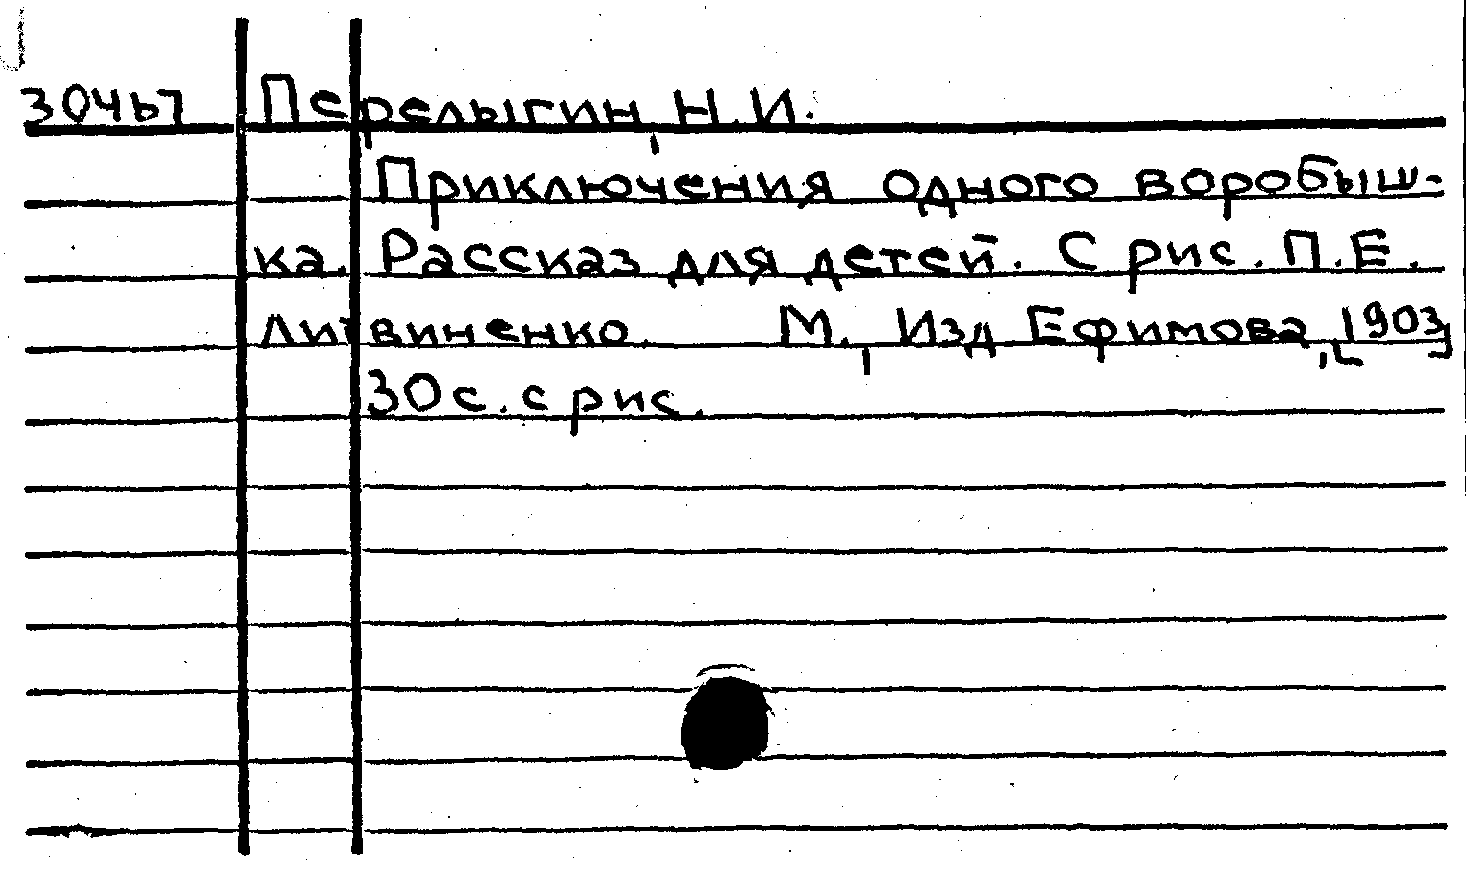 30467 Перелыгин, Н.И.
Приключения одного воробыш-
ка. Рассказ для детей. С рис. П.Е.
Литвиненко. М., Изд Ефимова, [1903]
30 с. с рис.